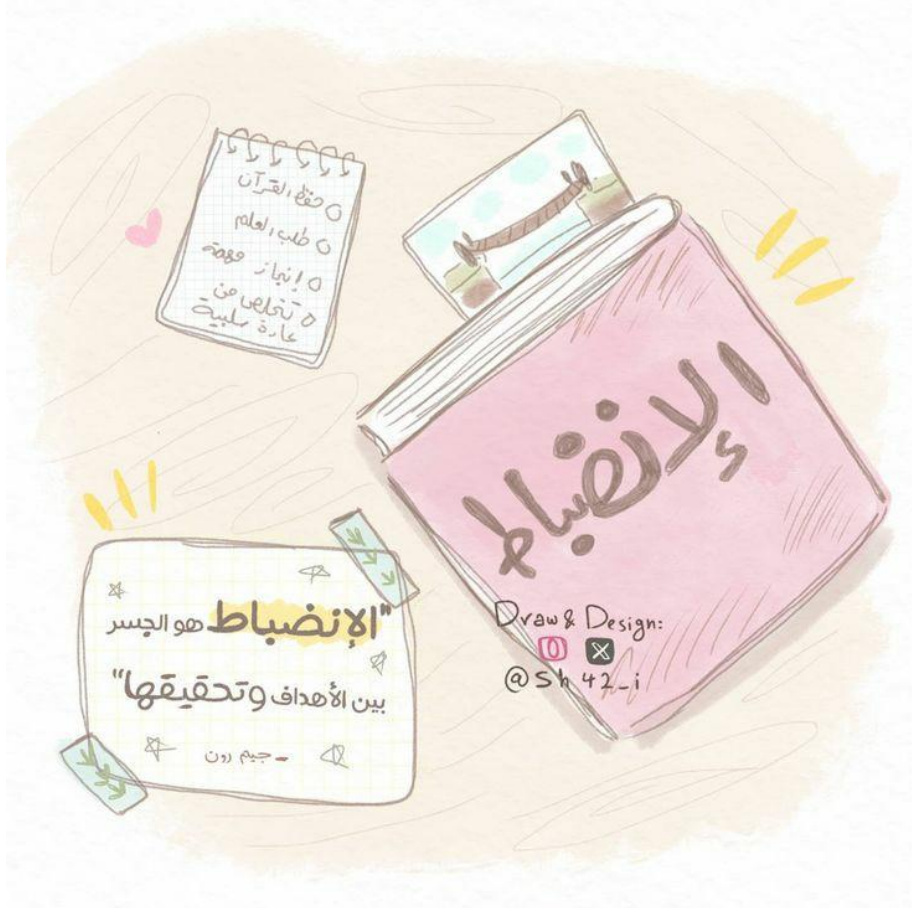 حفظ القرآن
طلب العلم
إنجاز مهمة
تخلص من
عادة سلبية
الإنضباط
"الإنضباط هو الجسر
بين الأهداف وتحقيقها"
- جيم رون
Draw & Design:
@Sh42_i